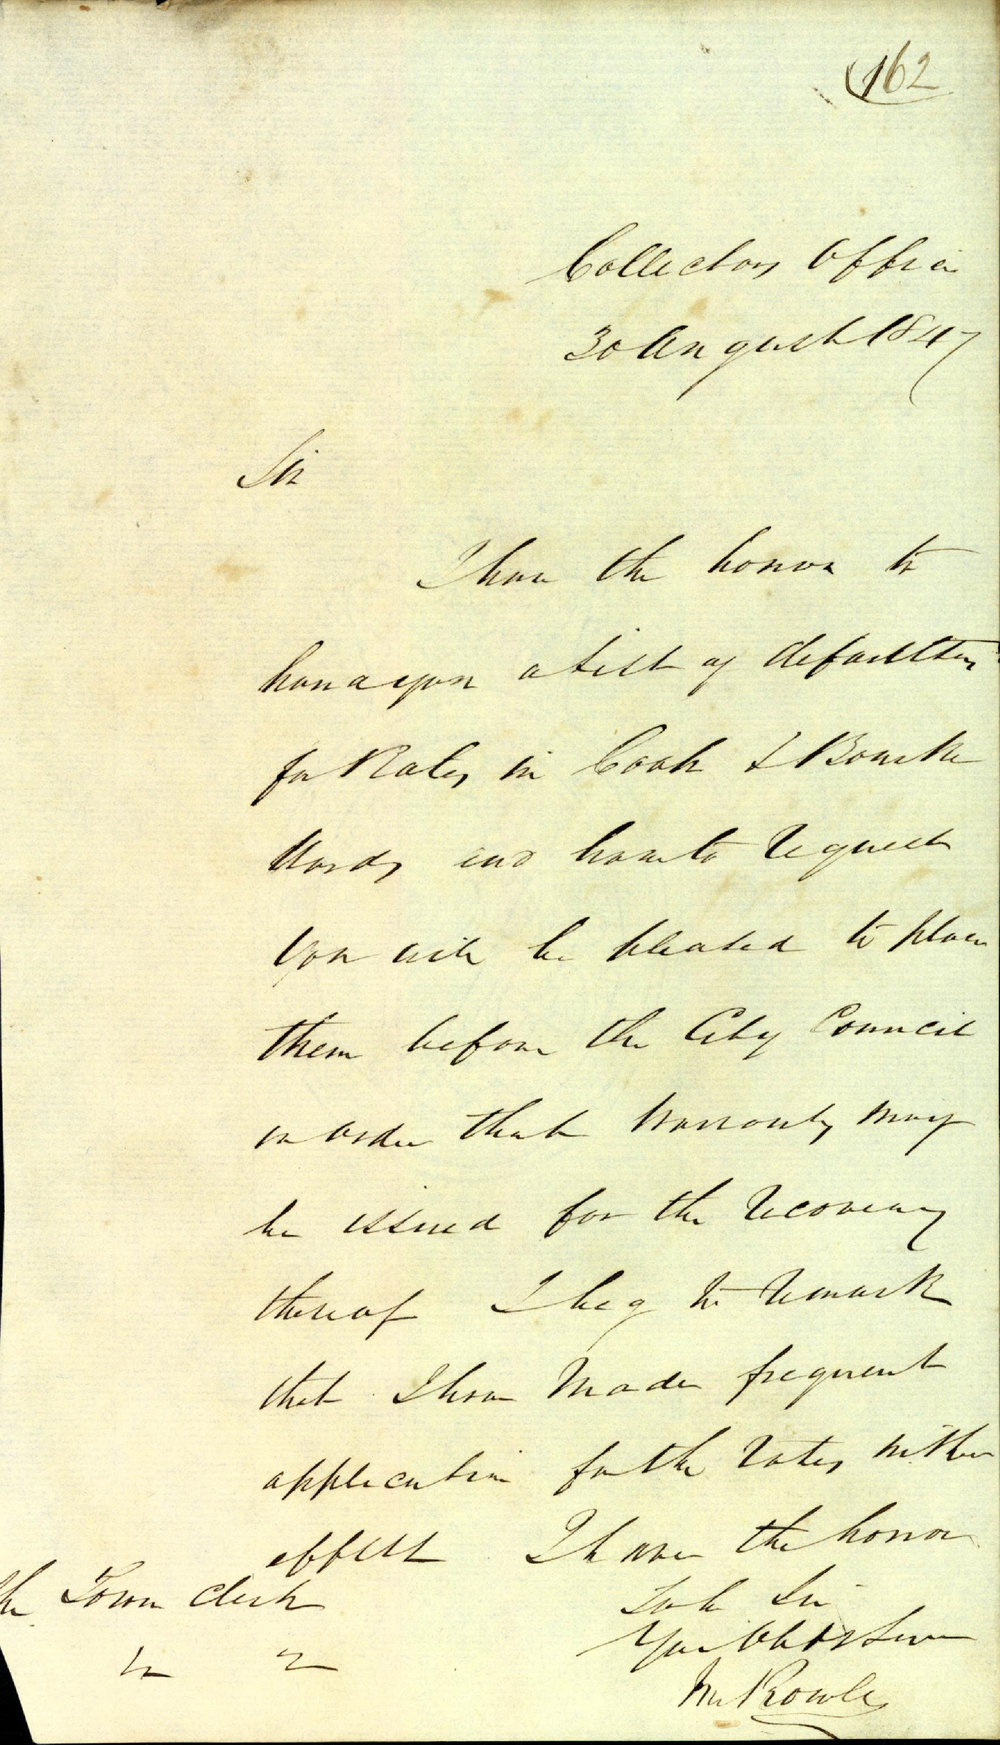 162
Collectors Office
30 August 1847
Sir
I have the honor to
hand you a list of defaulters
for Rates in Cook & Bourke
Wards and have to request
you will be pleased to place
them before the City Council
in order that Warrants may
be issued for the recovery
thereof I beg to remark
that I have made frequent
application for the rates without
effect I have the honor
to be Sir
The Town Clerk
Your Obdt Serv
Wm Rowley